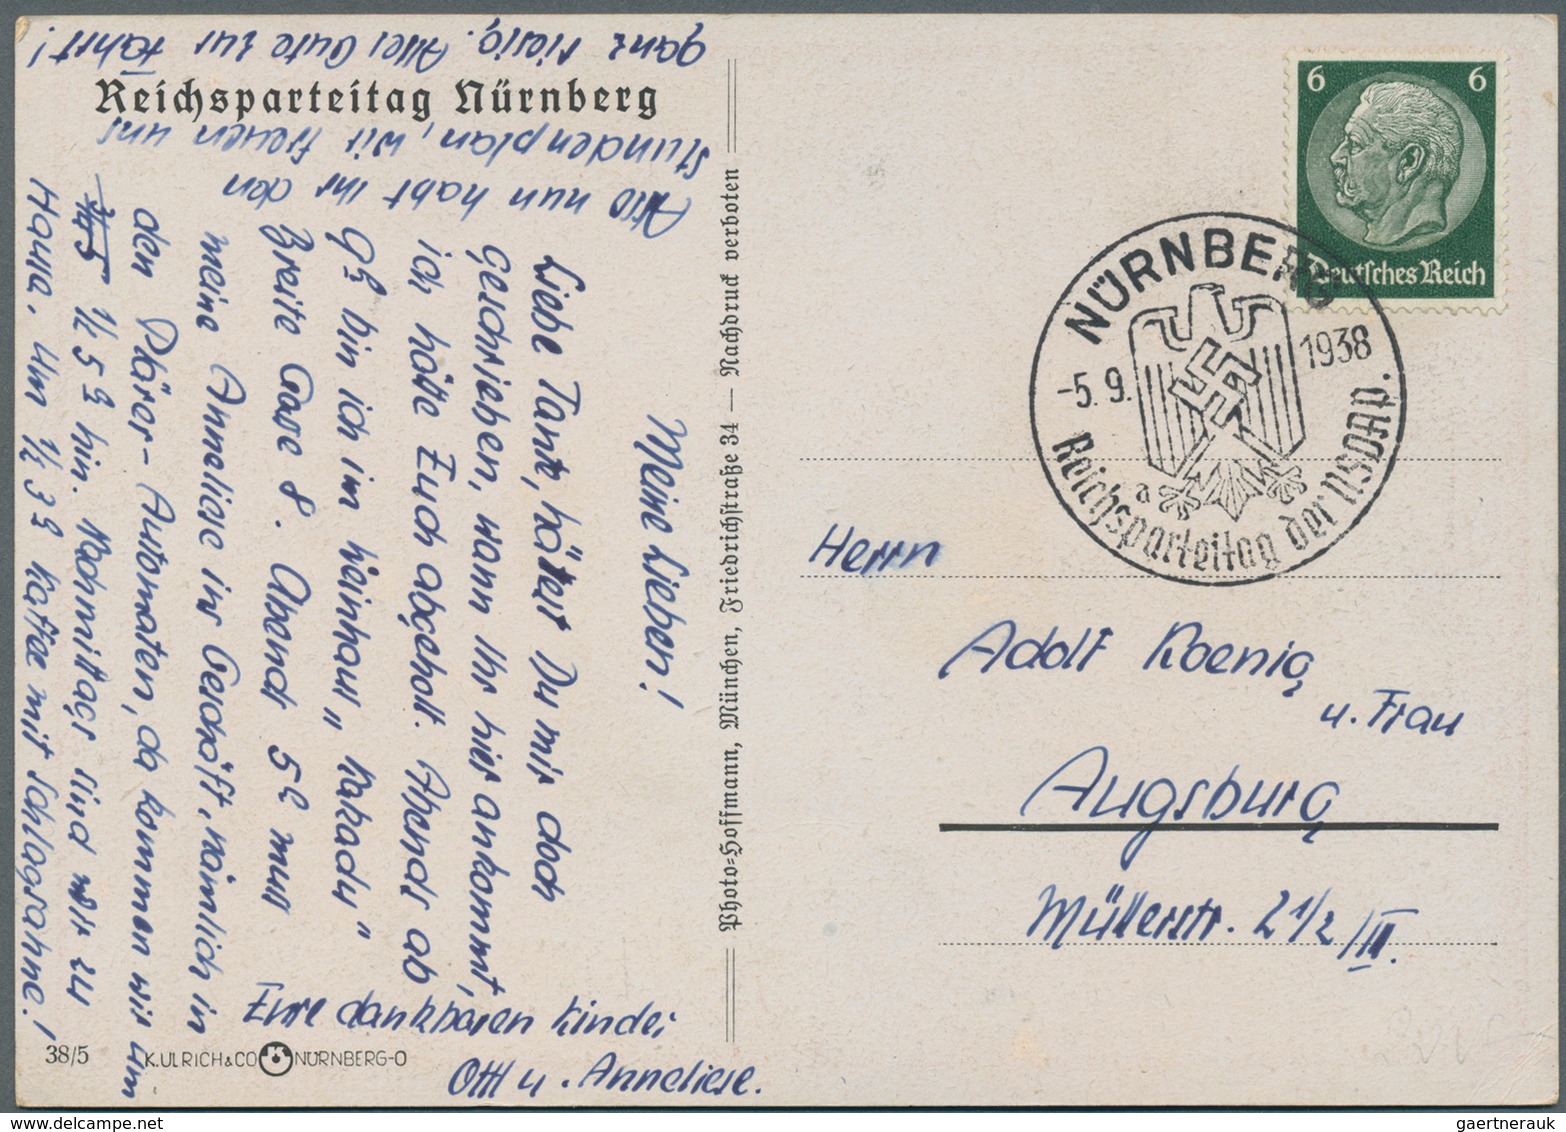 Reichsparteitag Nürnberg
Meine Lieben!
Liebe Tante, hättest Du mir doch
geschrieben, wann Ihr hier ankommt,
ich hätte Euch abgeholt. Abends ab
bin ich im Weinhaus „Kakadu"
Breite Gasse 8. Abends 5 muss
meine Anneliese ins Geschäft, nämlich in
den Plärer-Automaten, da kommen wir um
½ 5 hin. Nachmittags sind wir zu
Hause. Um ½ 3 Kaffee mit Schlagsahne!
Also nun habt Ihr den
Stundenplan, wir freuen uns
ganz riesig. Alles Gute zur Fahrt!
Eure dankbaren Kinder
Ottl u. Anneliese.
38/5
K.ULRICH&CO NÜRNBERG-O
Photo-Hoffmann, München, Friedrichstraße 34 — Nachdruck verboten
6 6
Deutsches Reich
NÜRNBERG
-5.9. 1938
a
Reichsparteitag der NSDAP.
Herrn
Adolf Koenig
u. Frau
Augsburg
Müllerstr. 2 1/2 /III.
gaertnerauk